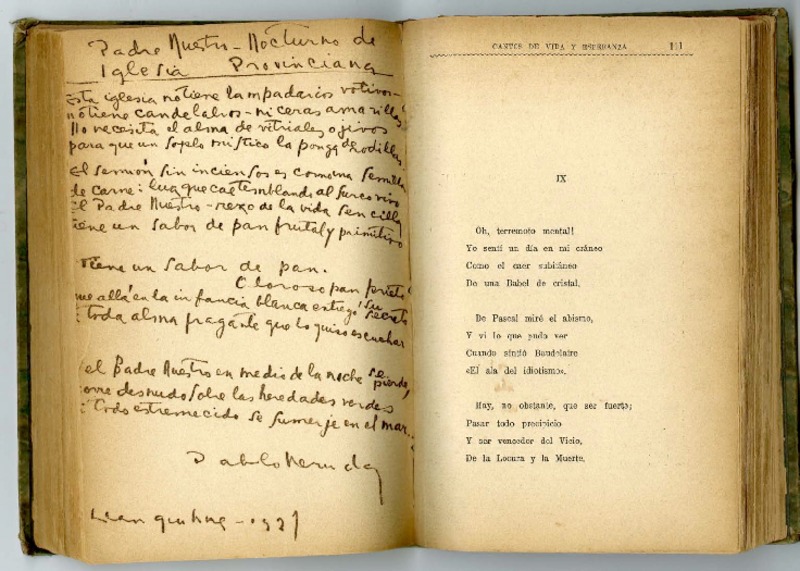 Padre Nuestro - Nocturno de
Iglesia Provinciana
Esta iglesia no tiene lampadarios votivos -
no tiene candelabros - ni ceras amarillas
No necesita el alma de vitriales ojivos
para que un soplo místico la ponga de rodillas
El sermón sin inciensos es como una semilla
de carne i luz que cae temblando al surco vivo
el Padre Nuestro - rezo de la vida sencilla
tiene un sabor de pan frutal y primitivo
tiene un sabor de pan.
Oloroso pan prieto
que allá en la infancia blanca entregó su secreto
toda alma fragante que lo quiso escuchar
el Padre Nuestro en medio de la noche se pierde,
corre desnudo sobre las heredades verdes
i todo estremecido se sumerje en el mar..
Pablo Neruda
CANTOS DE VIDA Y ESPERANZA 111
IX
Oh, terremoto mental!
Yo sentí un día en mi cráneo
Como el caer subitáneo
De una Babel de cristal.
De Pascal miré el abismo,
Y vi lo que pudo ver
Cuando sintió Baudelaire
«El ala del idiotismo».
Hay, no obstante, que ser fuerte;
Pasar todo precipicio
Y ser vencedor del Vicio,
De la Locura y la Muerte.